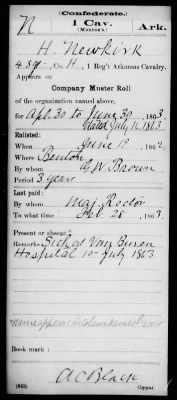 (Confederate.)
N 1 Cav. Ark.
(Monroe's.)
H. Newkirk
4 Sgt, Co. H, 1 Reg't Arkansas Cavalry.
Appears on
Company Muster Roll
of the organization named above,
for Apl 30 to June 30, 1863.
dated July 16, 1863
Enlisted:
When June 19, 1862.
Where Benton
By whom G W Brown
Period 3 years
Last paid:
By whom Maj. Rector
To what time Feb 28, 1863.
Present or absent?
Remarks: Sick at Van Buren
Hospital 10 July 1863
Book mark:
A C Black
(642) Copyist.